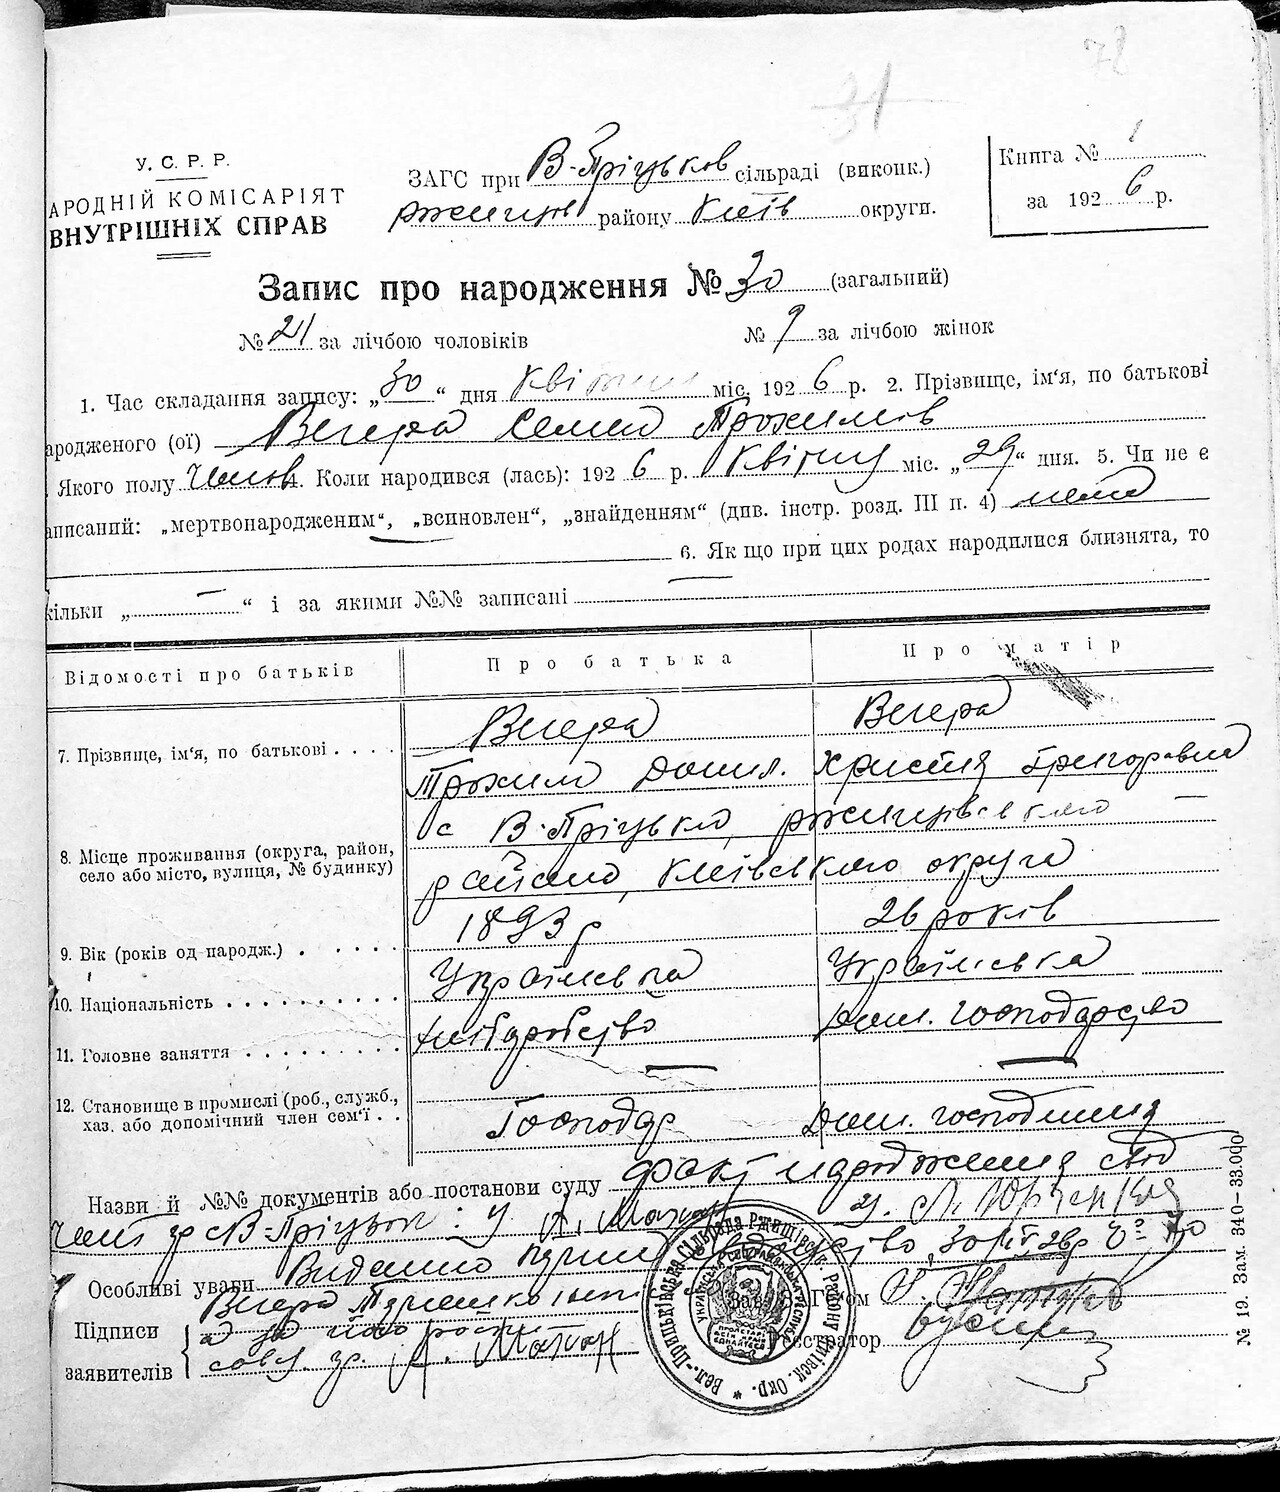 78
31
У. С. Р. Р.
АРОДНІЙ КОМІСАРІЯТ
ВНУТРІШНІХ СПРАВ
ЗАГС при В-Пріцьков сільраді (виконк.)
ржищів району Київ округи.
Книга № 1
за 1926 р.
Запис про народження № 30 (загальний)
№ 21 за лічбою чоловіків № 9 за лічбою жінок
1. Час складання запису: „30“ дня квітня міс. 1926 р. 2. Прізвище, ім‘я, по батькові
ародженого (ої) Вегера Семен Трохимов
. Якого полу Чолов. Коли народився (лась): 1926 р. квітня міс. „29“ дня. 5. Чи не є
аписаний: „мертвонародженим“, „всиновлен“, „знайденням“ (див. інстр. розд. III п. 4) нема
6. Як що при цих родах народилися близнята, то
кільки „ — “ і за якими №№ записані —
Відомості про батьків Про батька Про матір
7. Прізвище, ім‘я, по батькові . . . . Вегера Вегера
Трохим Данил. Христя Григоровна
8. Місце проживання (округа, район, село або місто, вулиця, № будинку) с В-Пріцько, ржищівського
району, київського округа
9. Вік (років од народж.) . . . . . 1893 р 26 років
10. Національність . . . . . . . . . . Українська Українська
11. Головне заняття . . . . . . . . . хліборобство Дом. господарство
— —
12. Становище в промислі (роб., служб., хаз. або допомічний член сем‘ї . . Господар Дом. господиня
Назви й №№ документів або постанови суду факт народження
гр с В-Пріцьок:
Особливі уваги Видано
Підписи заявителів Вегера
а за його
Зав. Загсом
Реєстратор
Вел.-Прицьківська Сільрада Ржищівськ. Району Київськ. Окр. *
№ 19. Зам. 340—33.000